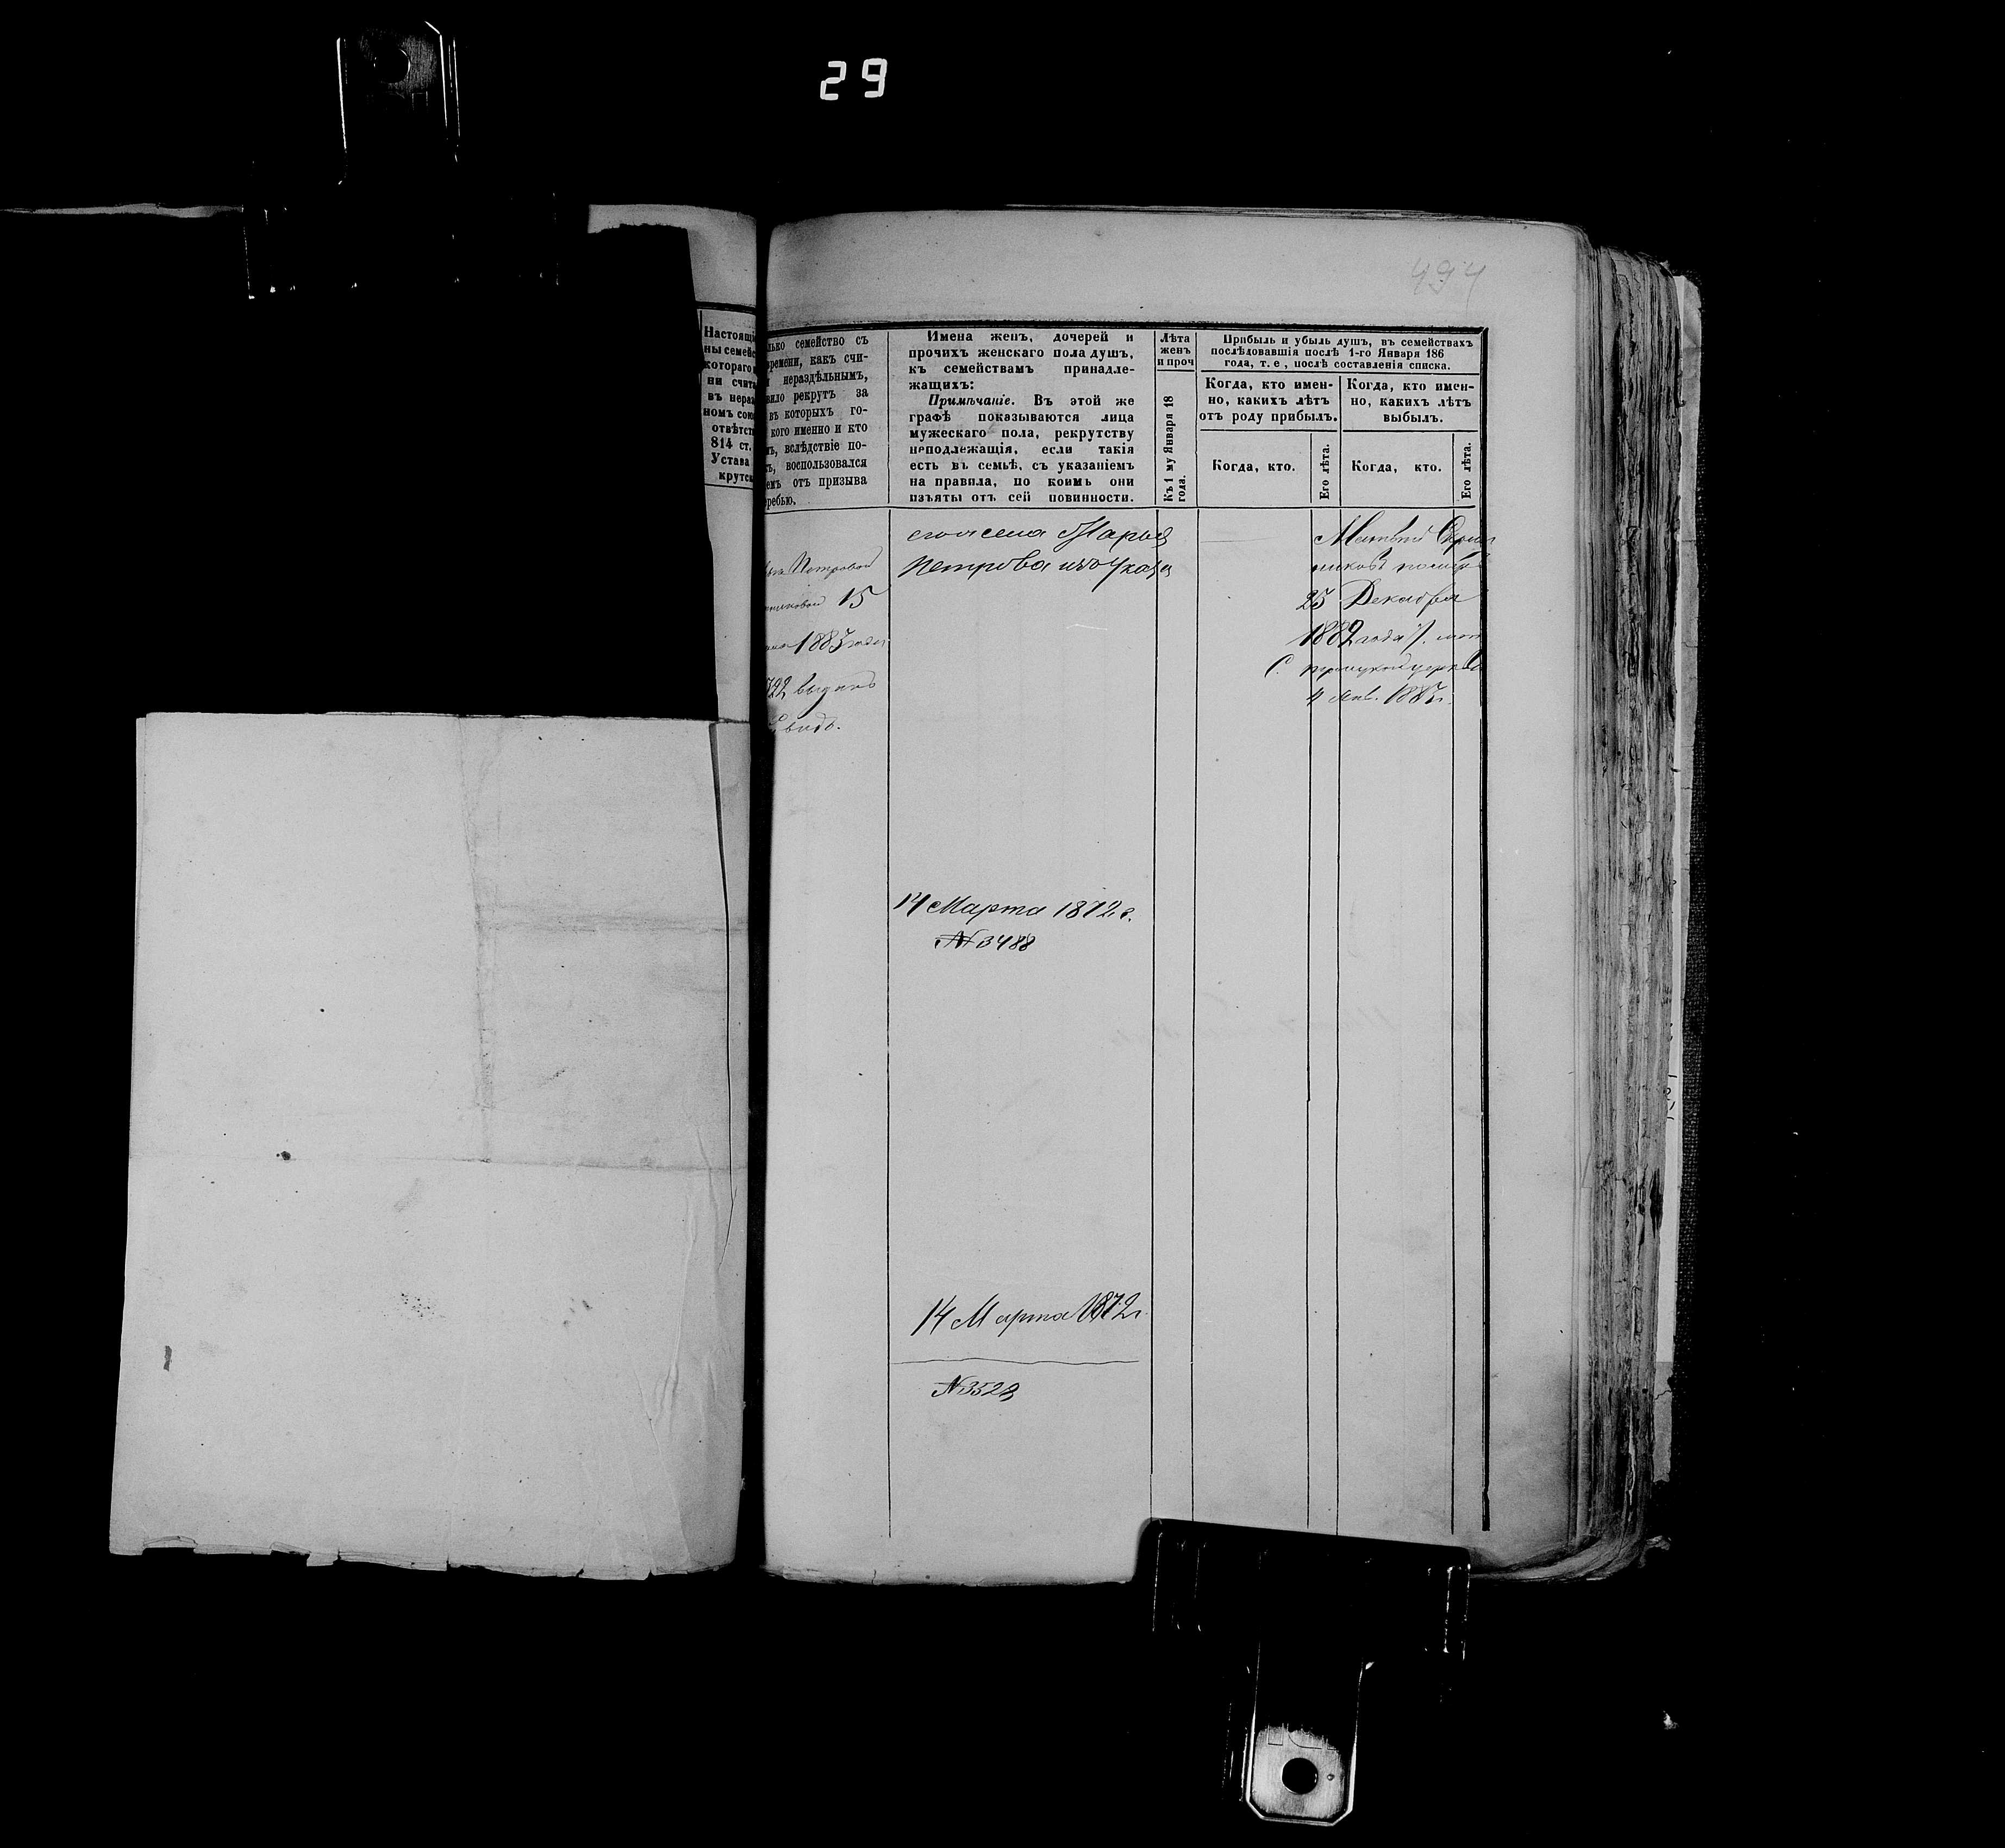 29
494
Настоящі
ны семейс
котораго
ни счита
въ нераз
номъ сою
отвѣтст
814 ст.
Устава
крутск
лько семейство съ
времени, какъ счи-
нераздѣльнымъ,
вило рекрутъ за
въ которыхъ го-
кого именно и кто
ъ, вслѣдствіе по-
ъ, воспользовался
емъ отъ призыва
ребью.
Имена женъ, дочерей и
прочихъ женскаго пола душъ,
къ семействамъ принадле-
жащихъ:
Примѣчаніе. Въ этой же
графѣ показываются лица
мужескаго пола, рекрутству
неподлежащія, если такія
есть въ семьѣ, съ указаніемъ
на правила, по коимъ они
изъяты отъ сей повинности.
Лѣта
женъ
и проч
Къ 1 му Января 18
года.
Прибыль и убыль душъ, въ семействахъ
послѣдовавшія послѣ 1-го Января 186
года, т. е , послѣ составленія списка.
Когда, кто имен-
но, какихъ лѣтъ
отъ роду прибылъ.
Когда, кто.
Его лѣта.
Когда, кто имен-
но, какихъ лѣтъ
выбылъ.
Когда, кто.
Его лѣта.
Петровой
15
1883 года
722 выдано
Свид.
Марья
Петрова
14 Марта 1872 г.
№ 3488
14 Марта 1872 г.
№ 3523
Матвѣй
25 Декабря
1882 года
4 Янв. 1883 г.